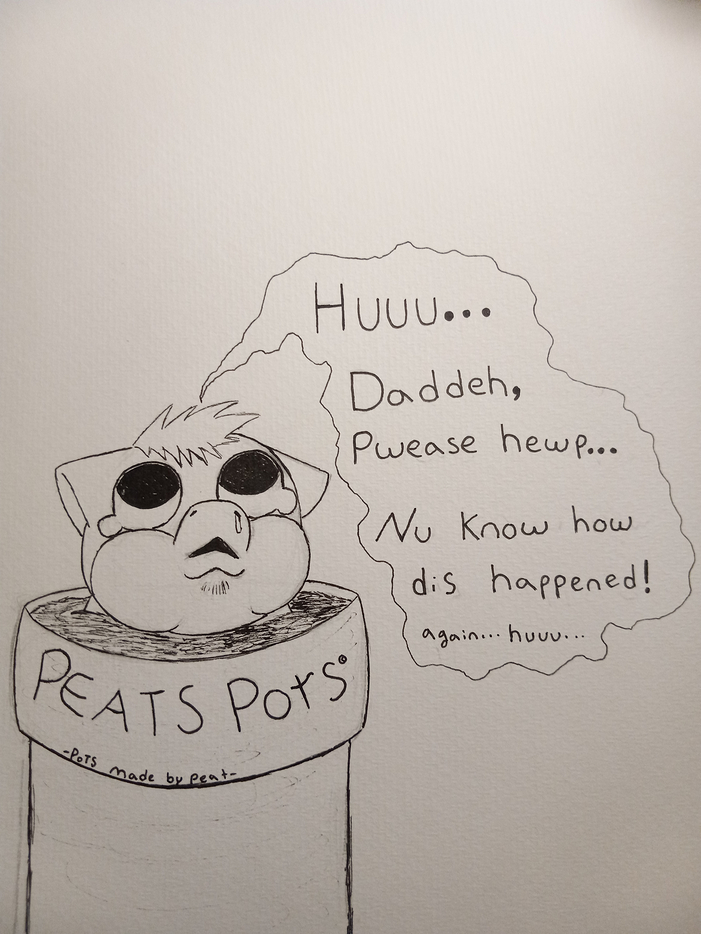 Huuu...
Daddeh,
Pwease hewp...
Nu know how
dis happened!
again... huuu...
PEATS POTS®
-POTS made by peat-